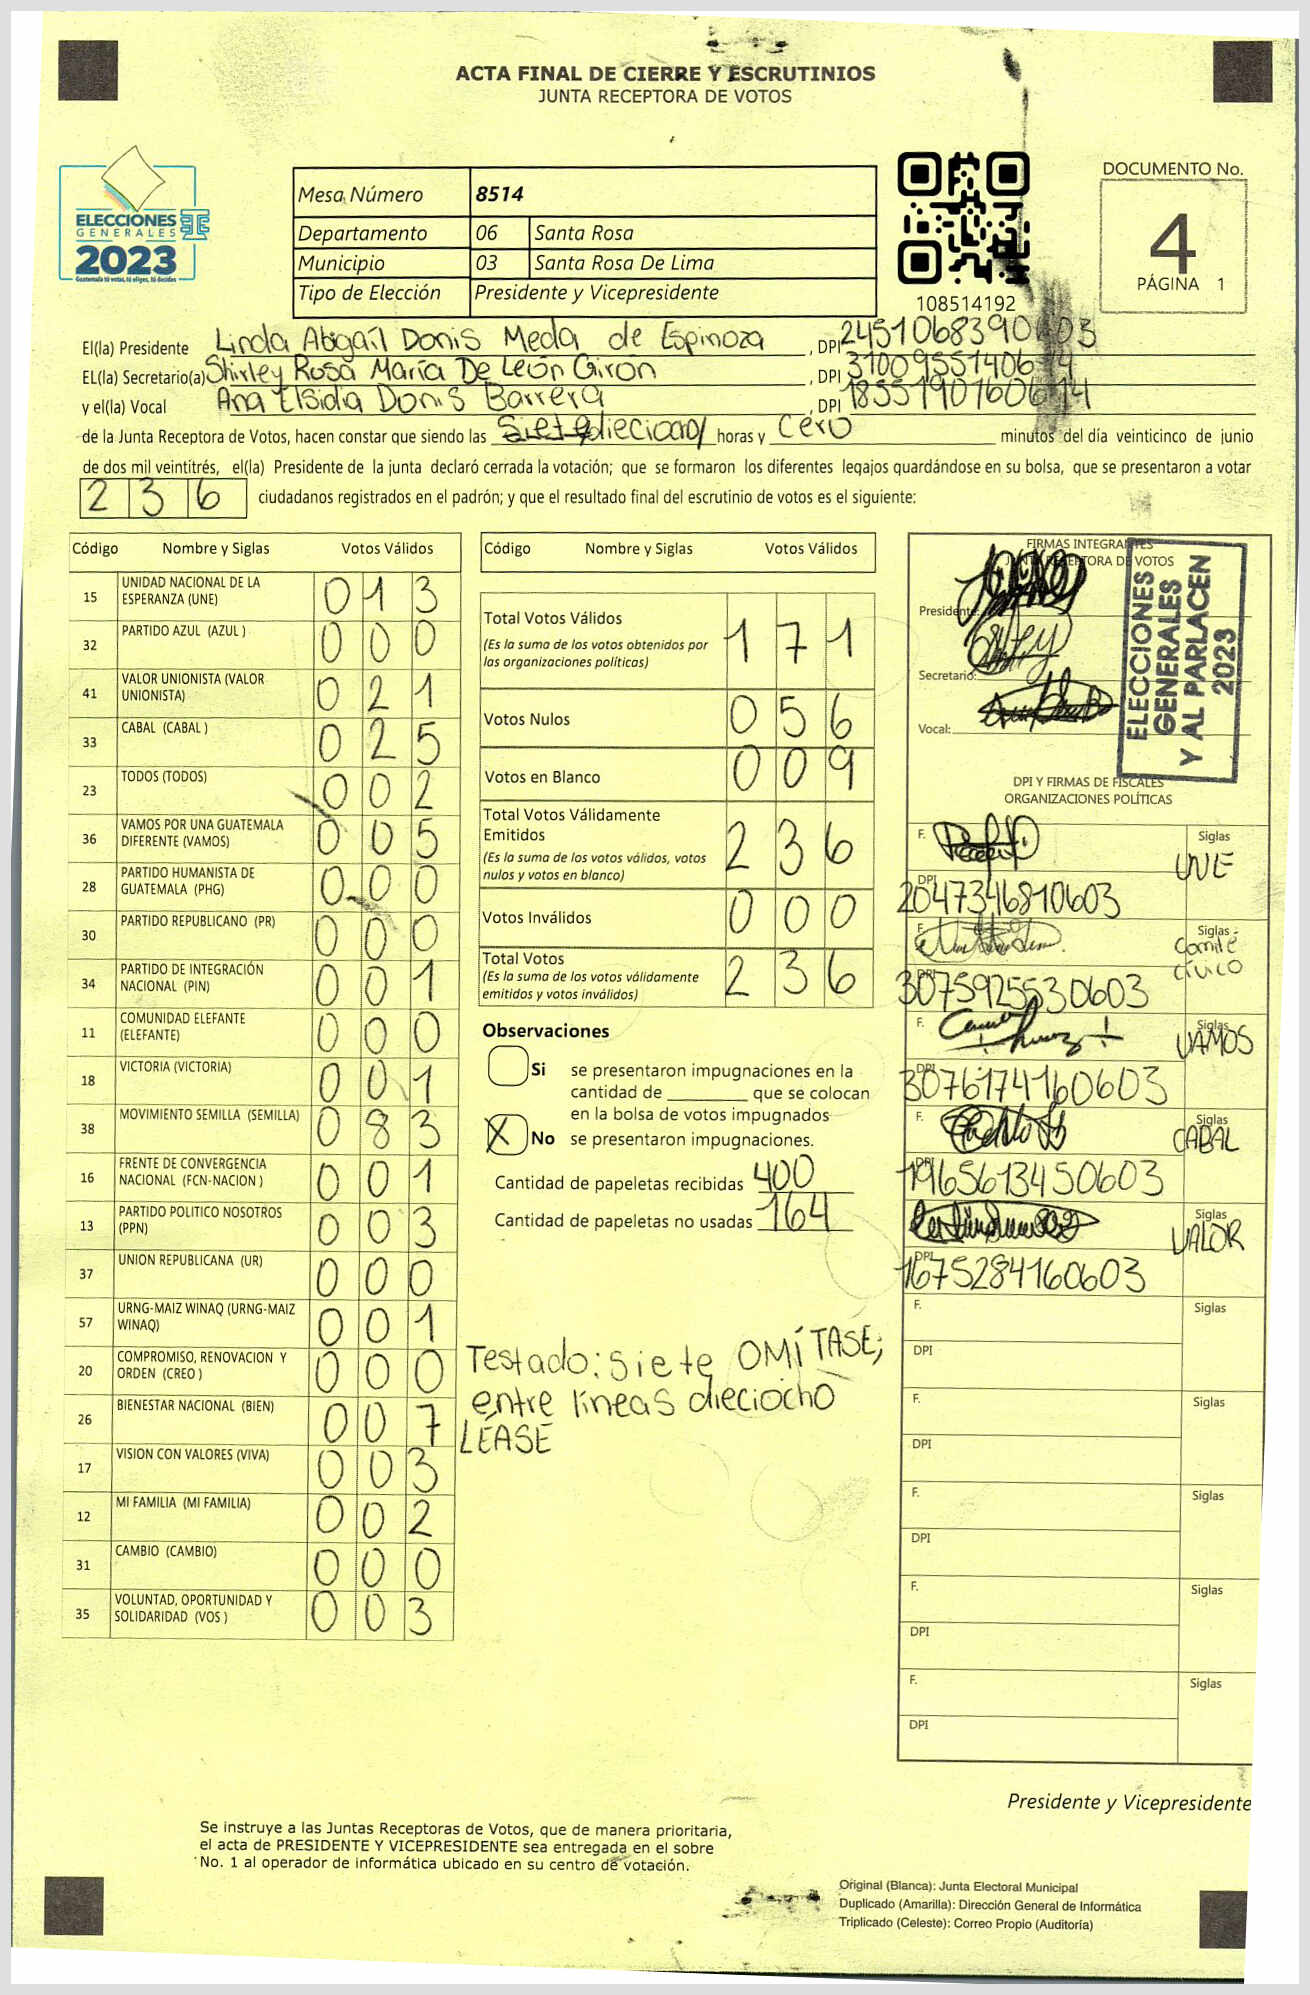 ACTA FINAL DE CIERRE Y ESCRUTINIOS
JUNTA RECEPTORA DE VOTOS
ELECCIONES
GENERALES
2023
Guatemala tú votas, tú eliges, tú decides
Mesa Número 8514
Departamento 06 Santa Rosa
Municipio 03 Santa Rosa De Lima
Tipo de Elección Presidente y Vicepresidente
108514192
DOCUMENTO No.
4
PÁGINA 1
El(la) Presidente Linda Abigaíl Donis Meda de Espinoza , DPI
EL(la) Secretario(a) Shirley Rosa María De León Girón , DPI
y el(la) Vocal Ana Elsidia Donis Barrera , DPI
de la Junta Receptora de Votos, hacen constar que siendo las siete dieciocho horas y cero minutos del día veinticinco de junio
de dos mil veintitrés, el(la) Presidente de la junta declaró cerrada la votación; que se formaron los diferentes legajos quardándose en su bolsa, que se presentaron a votar
236 ciudadanos registrados en el padrón; y que el resultado final del escrutinio de votos es el siguiente:
Código Nombre y Siglas Votos Válidos
15 UNIDAD NACIONAL DE LA ESPERANZA (UNE) 013
32 PARTIDO AZUL (AZUL ) 000
41 VALOR UNIONISTA (VALOR UNIONISTA) 021
33 CABAL (CABAL ) 025
23 TODOS (TODOS) 002
36 VAMOS POR UNA GUATEMALA DIFERENTE (VAMOS) 005
28 PARTIDO HUMANISTA DE GUATEMALA (PHG) 000
30 PARTIDO REPUBLICANO (PR) 000
34 PARTIDO DE INTEGRACIÓN NACIONAL (PIN) 001
11 COMUNIDAD ELEFANTE (ELEFANTE) 000
18 VICTORIA (VICTORIA) 001
38 MOVIMIENTO SEMILLA (SEMILLA) 083
16 FRENTE DE CONVERGENCIA NACIONAL (FCN-NACION ) 001
13 PARTIDO POLITICO NOSOTROS (PPN) 003
37 UNION REPUBLICANA (UR) 000
57 URNG-MAIZ WINAQ (URNG-MAIZ WINAQ) 001
20 COMPROMISO, RENOVACION Y ORDEN (CREO ) 000
26 BIENESTAR NACIONAL (BIEN) 007
17 VISION CON VALORES (VIVA) 003
12 MI FAMILIA (MI FAMILIA) 002
31 CAMBIO (CAMBIO) 000
35 VOLUNTAD, OPORTUNIDAD Y SOLIDARIDAD (VOS ) 003
Código Nombre y Siglas Votos Válidos
Total Votos Válidos 171
(Es la suma de los votos obtenidos por
las organizaciones políticas)
Votos Nulos 056
Votos en Blanco 009
Total Votos Válidamente
Emitidos 236
(Es la suma de los votos válidos, votos
nulos y votos en blanco)
Votos Inválidos 000
Total Votos 236
(Es la suma de los votos válidamente
emitidos y votos inválidos)
Observaciones
Si se presentaron impugnaciones en la
cantidad de ________ que se colocan
en la bolsa de votos impugnados
X No se presentaron impugnaciones.
Cantidad de papeletas recibidas 400
Cantidad de papeletas no usadas 164
Testado: siete OMÍTASE;
entre líneas dieciocho
LÉASE
FIRMAS INTEGRANTES
JUNTA RECEPTORA DE VOTOS
Presidente:
Secretario:
Vocal:
ELECCIONES
GENERALES
Y AL PARLACEN
2023
DPI Y FIRMAS DE FISCALES
ORGANIZACIONES POLÍTICAS
F. Siglas UNE
DPI 2047346810603
F. Siglas Comité cívico
DPI 3075925530603
F. Siglas VAMOS
DPI 3076174160603
F. Siglas CABAL
DPI 1965613450603
F. Siglas VALOR
DPI 1675284160603
F. Siglas
DPI
F. Siglas
DPI
F. Siglas
DPI
F. Siglas
DPI
F. Siglas
DPI
Presidente y Vicepresidente
Se instruye a las Juntas Receptoras de Votos, que de manera prioritaria,
el acta de PRESIDENTE Y VICEPRESIDENTE sea entregada en el sobre
No. 1 al operador de informática ubicado en su centro de votación.
Original (Blanca): Junta Electoral Municipal
Duplicado (Amarilla): Dirección General de Informática
Triplicado (Celeste): Correo Propio (Auditoría)